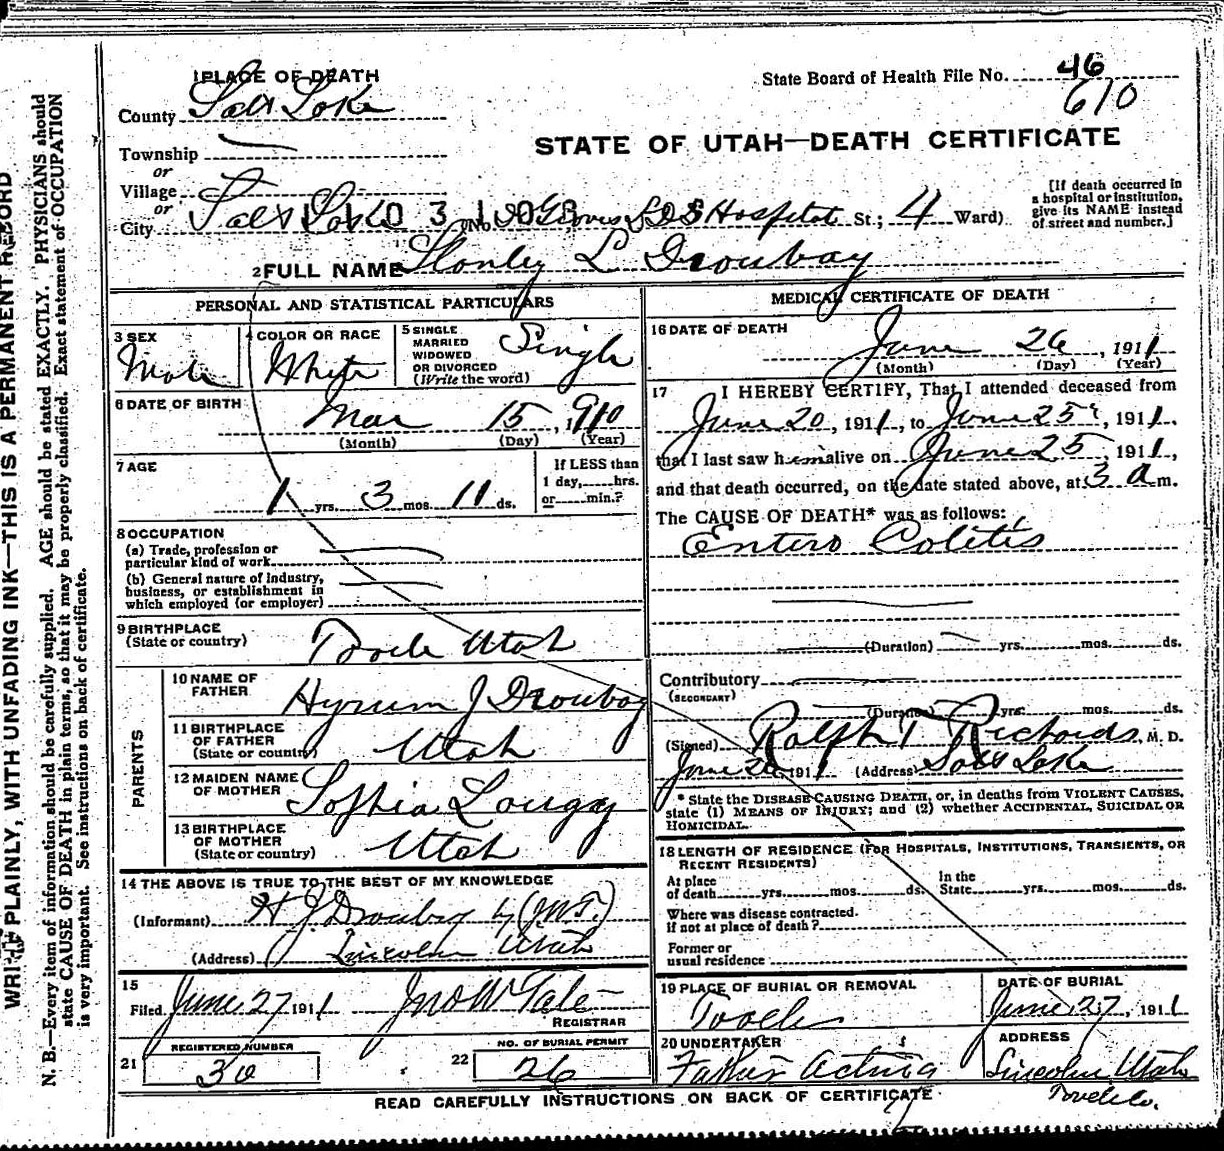 WRITE PLAINLY, WITH UNFADING INK—THIS IS A PERMANENT RECORD
N. B.—Every item of information should be carefully supplied. AGE should be stated EXACTLY. PHYSICIANS should
state CAUSE OF DEATH in plain terms, so that it may be properly classified. Exact statement of OCCUPATION
is very important. See instructions on back of certificate.
1 PLACE OF DEATH
County Salt Lake
Township
or
Village
or
City Salt Lake
State Board of Health File No. 46
610
STATE OF UTAH—DEATH CERTIFICATE
(No. Groves L D S Hospital St.; 4 Ward)
[If death occurred in
a hospital or institution,
give its NAME instead
of street and number.]
2 FULL NAME Stanley L Droubay
PERSONAL AND STATISTICAL PARTICULARS
3 SEX
Male
4 COLOR OR RACE
White
5 SINGLE
MARRIED
WIDOWED
OR DIVORCED
(Write the word)
Single
6 DATE OF BIRTH
Mar 15, 1910
(Month) (Day) (Year)
7 AGE
1 yrs. 3 mos. 11 ds.
If LESS than
1 day, hrs.
or min.?
8 OCCUPATION
(a) Trade, profession or
particular kind of work
(b) General nature of industry,
business, or establishment in
which employed (or employer)
9 BIRTHPLACE
(State or country)
Tooele Utah
PARENTS
10 NAME OF
FATHER
Hyrum J Droubay
11 BIRTHPLACE
OF FATHER
(State or country)
Utah
12 MAIDEN NAME
OF MOTHER
Sophia Lougy
13 BIRTHPLACE
OF MOTHER
(State or country)
Utah
14 THE ABOVE IS TRUE TO THE BEST OF MY KNOWLEDGE
(Informant) H J Droubay by (JMT.)
(Address) Lincoln Utah
15
Filed June 27 1911 Jno W Tate
REGISTRAR
21 REGISTERED NUMBER
30
22 NO. OF BURIAL PERMIT
26
MEDICAL CERTIFICATE OF DEATH
16 DATE OF DEATH
June 26, 1911
(Month) (Day) (Year)
17 I HEREBY CERTIFY, That I attended deceased from
June 20, 1911, to June 25, 1911.
that I last saw him alive on June 25, 1911,
and that death occurred, on the date stated above, at 3 a m.
The CAUSE OF DEATH* was as follows:
Entero Colitis
(Duration) yrs. mos. ds.
Contributory
(SECONDARY)
(Duration) yrs. mos. ds.
(Signed) Ralph T Richards, M. D.
June 26 1911 (Address) Salt Lake
* State the DISEASE CAUSING DEATH, or, in deaths from VIOLENT CAUSES,
state (1) MEANS OF INJURY; and (2) whether ACCIDENTAL, SUICIDAL OR
HOMICIDAL.
18 LENGTH OF RESIDENCE (FOR HOSPITALS, INSTITUTIONS, TRANSIENTS, OR
RECENT RESIDENTS)
At place
of death yrs. mos. ds.
In the
State yrs. mos. ds.
Where was disease contracted.
if not at place of death?
Former or
usual residence
19 PLACE OF BURIAL OR REMOVAL
Tooele
DATE OF BURIAL
June 27, 1911
20 UNDERTAKER
Father Acting
ADDRESS
Lincoln, Utah
Tooele Co.
READ CAREFULLY INSTRUCTIONS ON BACK OF CERTIFICATE